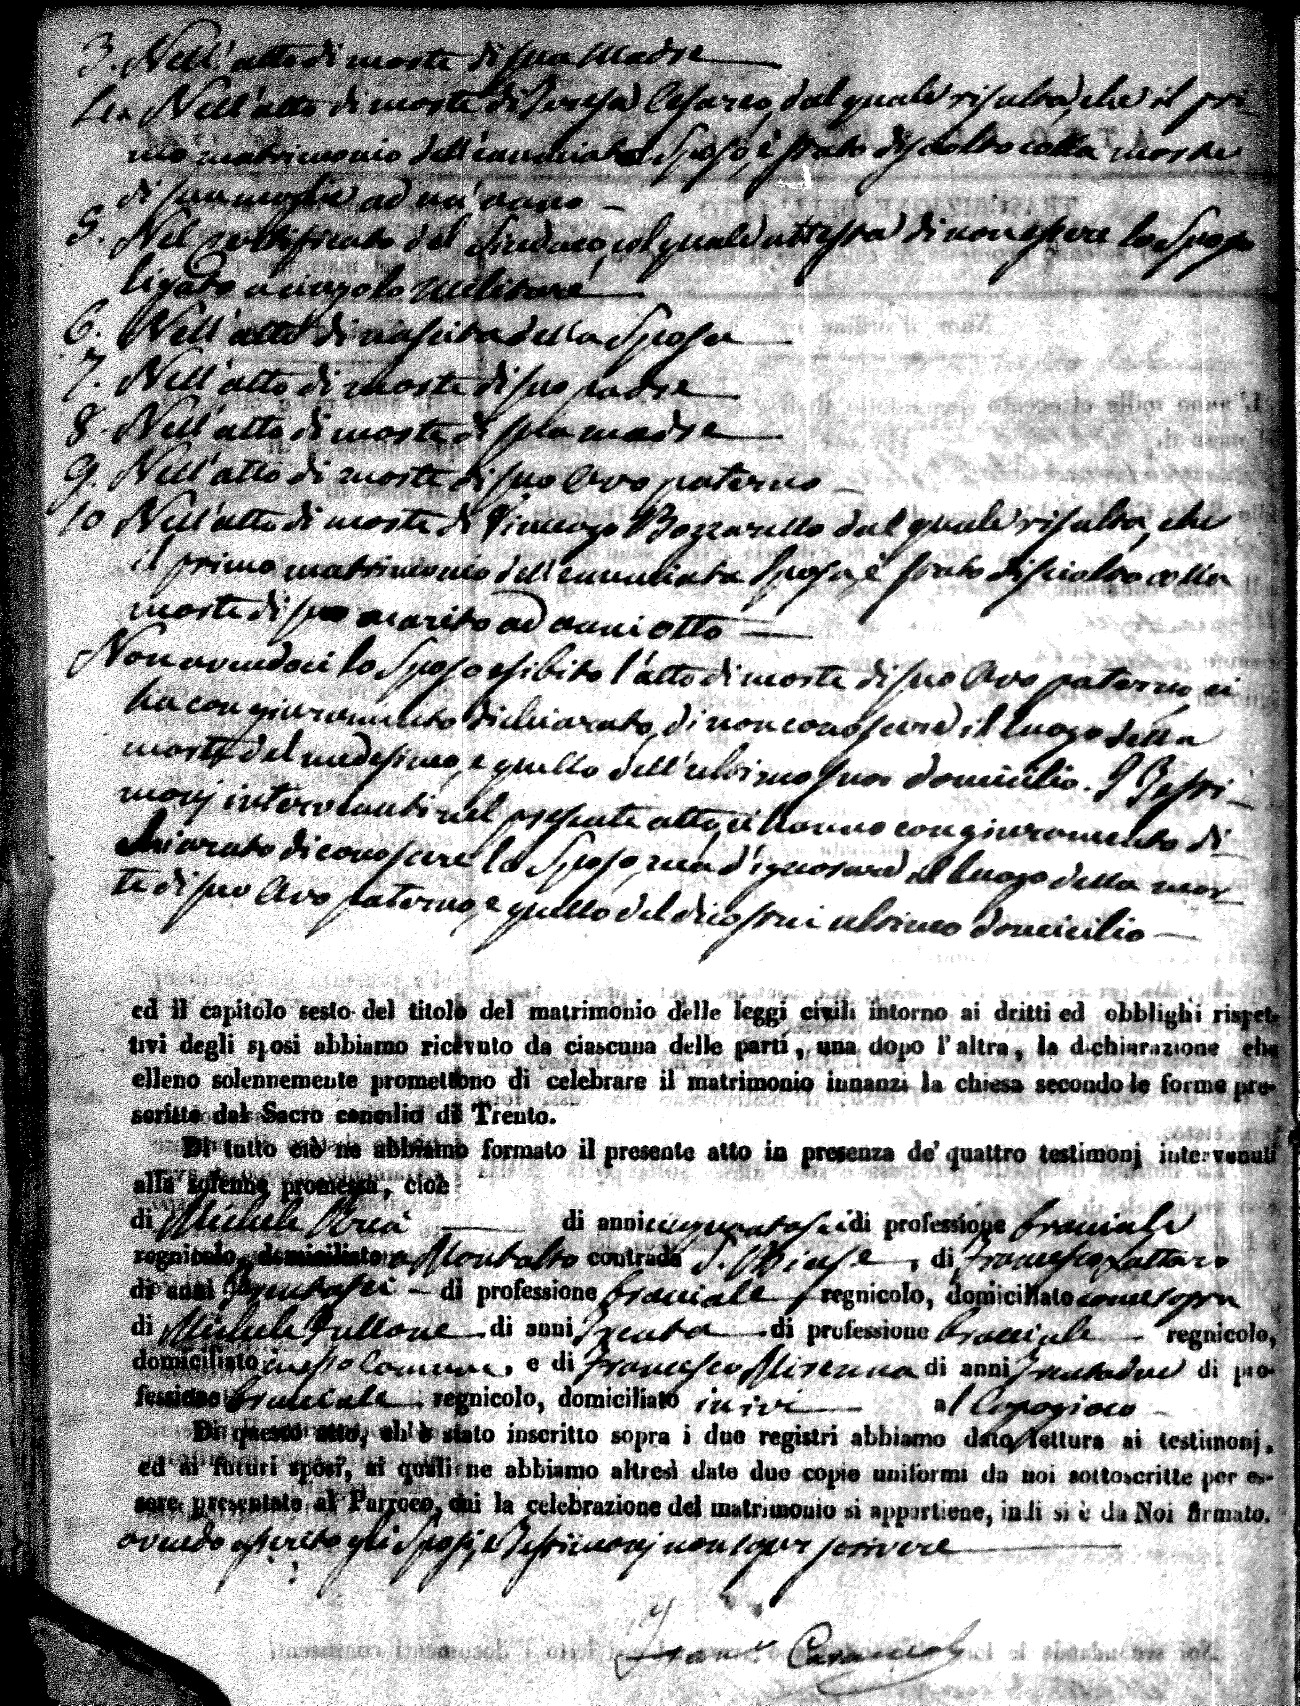 3. Nell'atto di morte di sua Madre
4. Nell'atto di morte di Teresa Cesareo, dal quale risulta, che il pri
mo matrimonio dell'enunciato Sposo, è stato disciolto colla morte
di sua moglie ad un'anno
5. Nel certificato del Sindaco, col quale attesta di non essere lo Sposo
ligato a cingolo militare
6. Nell'atto di nascita della Sposa
7. Nell'atto di morte di suo padre
8. Nell'atto di morte di sua madre
9. Nell'atto di morte di suo Avo paterno
10 Nell'atto di morte di Vincenzo Bozzarello dal quale risulta, che
il primo matrimonio dell'enunciata Sposa è stato disciolto colla
morte di suo marito ad anni otto
Non avendoci lo Sposo esibito l'atto di morte di suo Avo paterno, ci
ha con giuramento dichiarato, di non conoscere il luogo della
morte del medesimo, e quello dell'ultimo suo domicilio. I Testi-
monj intervenuti nel presente atto, ci hanno con giuramento di-
chiarato di conoscere lo Sposo, ma d'ignorare il luogo della mor-
te di suo Avo paterno, e quello del di costui ultimo domicilio
ed il capitolo sesto del titolo del matrimonio delle leggi civili intorno ai dritti ed obblighi rispet-
tivi degli sposi abbiamo ricevuto da ciascuna delle parti, una dopo l'altra, la dichiarazione che
elleno solennemente promettono di celebrare il matrimonio innanzi la chiesa secondo le forme pre-
scritte dal Sacro concilio di Trento.
Di tutto ciò ne abbiamo formato il presente atto in presenza de' quattro testimonj intervenuti
alla solenne promessa, cioè
di Michele di anni cinquantasei di professione bracciale
regnicolo, domiciliato a Montalto contrada S. Biase, di Francesco Lattaro
di anni trentasei di professione bracciale regnicolo, domiciliato come sopra
di Michele Fullone di anni trenta di professione bracciale regnicolo,
domiciliato in esso Comune, e di Francesco Miseuna di anni trentadue di pro-
fessione bracciale regnicolo, domiciliato in ivi al
Di questo atto, ch'è stato inscritto sopra i due registri abbiamo dato lettura ai testimonj,
ed ai futuri sposi, ai quali ne abbiamo altresì date due copie uniformi da noi sottoscritte per es-
sere presentate al Parroco, cui la celebrazione del matrimonio si appartiene, indi si è da Noi firmato.
avendo asserito gli Sposi, e Testimonj non saper scrivere